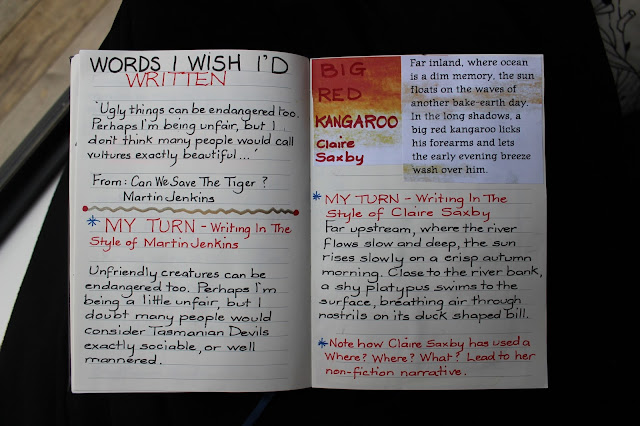 WORDS I WISH I'D
WRITTEN
'Ugly things can be endangered too.
Perhaps I'm being unfair, but I
don't think many people would call
vultures exactly beautiful...'
From: Can We Save The Tiger?
Martin Jenkins
* MY TURN - Writing In The
Style of Martin Jenkins
Unfriendly creatures can be
endangered too. Perhaps I'm
being a little unfair, but I
doubt many people would
consider Tasmanian Devils
exactly sociable, or well
mannered.
BIG
RED
KANGAROO
Claire
Saxby
Far inland, where ocean
is a dim memory, the sun
floats on the waves of
another bake-earth day.
In the long shadows, a
big red kangaroo licks
his forearms and lets
the early evening breeze
wash over him.
* MY TURN - Writing In The
Style of Claire Saxby
Far upstream, where the river
flows slow and deep, the sun
rises slowly on a crisp autumn
morning. Close to the river bank,
a shy platypus swims to the
surface, breathing air through
nostrils on its duck shaped bill.
* Note how Claire Saxby has used a
Where? Where? What? Lead to her
non-fiction narrative.